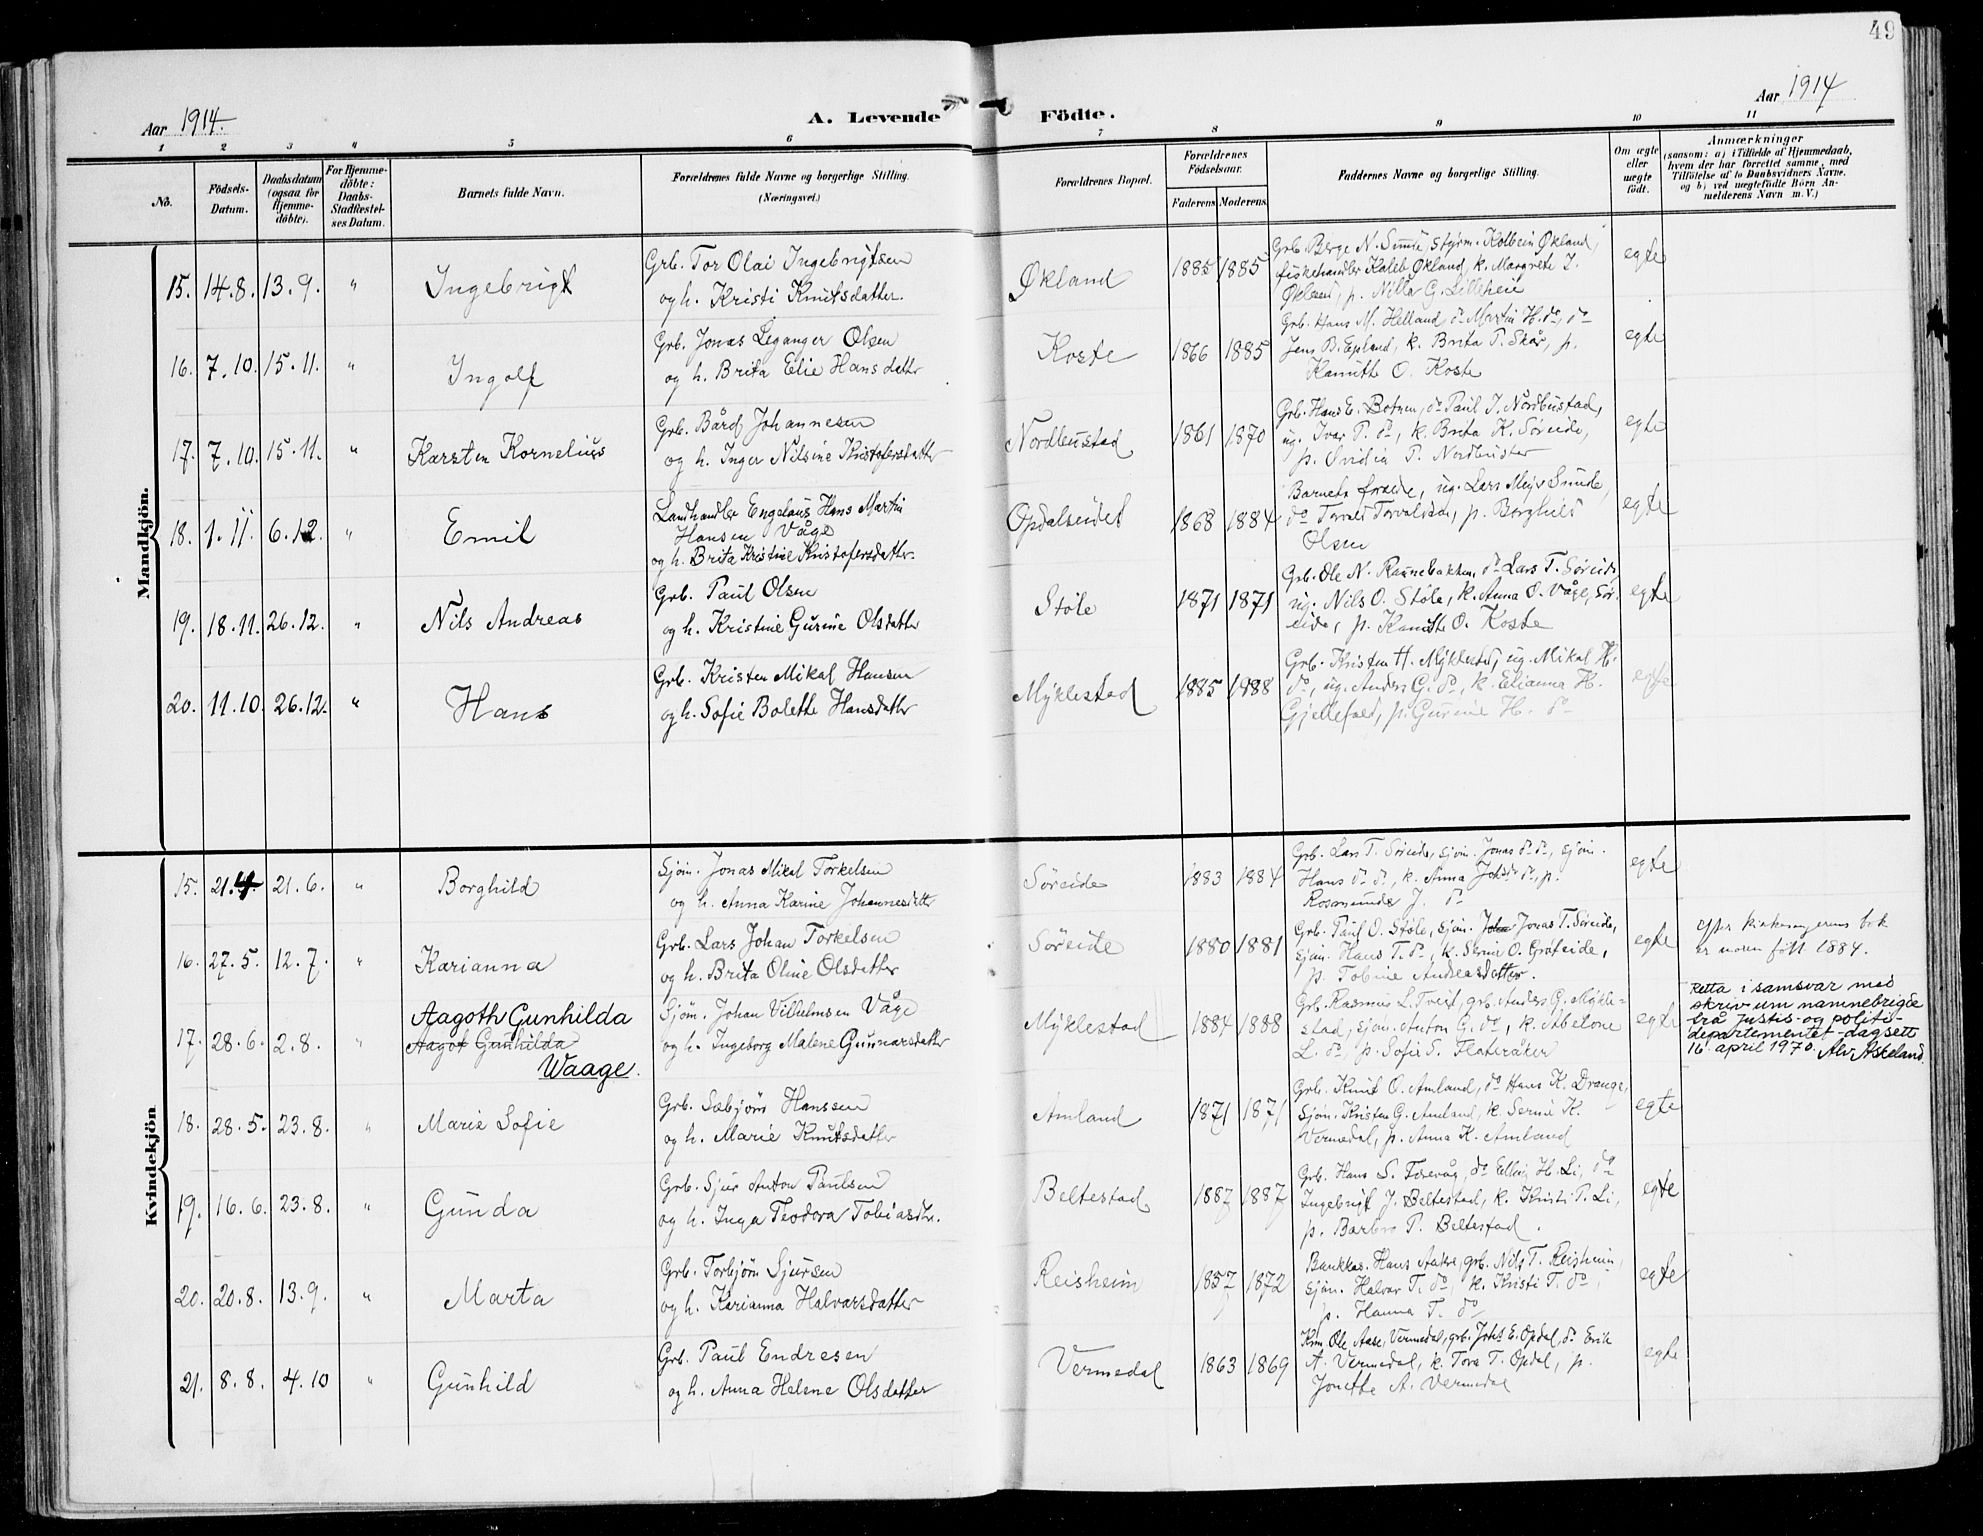 49
Aar 1914.
A. Levende
Födte.
Aar 1914
1 2 3 4 5 6 7 8 9 10 11
No.
Födsels-Datum.
Daabsdatum (ogsaa for Hjemmedöbte).
For Hjemmedöbte: Daabs-Stadfæstelses Datum.
Barnets fulde Navn.
Forældrenes fulde Navne og borgerlige Stilling. (Næringsvei.)
Forældrenes Bopæl.
Forældrenes Födselsaar.
Faderens Moderens
Faddernes Navne og borgerlige Stilling.
Om ægte eller uægte födt.
Anmærkninger
(saasom: a) i Tilfælde af Hjemmedaab,
hvem der har forrettet samme, med
Tilföielse af to Daabsvidners Navne,
og b) ved uægtefödte Börn An-
melderens Navn m. V.)
Mandkjön.
15. 14.8. 13.9. " Ingebrigt
Grb. Tor Olai Ingebrigtsen
og h. Kristi Knutsdatter.
Økland 1885 1885
Grb. Berge N. Sunde, styrm. Kolbein Økland,
fiskehandler Kaleb Økland, k. Margrete I.
Økland, p. Nilla G. Lillehei
egte
16. 7.10. 15.11. " Ingolf
Grb. Jonas Leganger Olsen
og h. Brita Elie Hansdatter
Koste 1866 1885
Grb. Hans M. Helland, do Martin H. do, do
Jens B. Epland, k. Brita T. Skår, p.
Kamitte O. Koste
egte
17. 7.10. 15.11. " Karsten Kornelius
Grb. Bård Johannesen
og h. Inger Nilsine Kristofersdatter
Nordbustad 1861 1870
Grb. Hans E. Botnen, do Paul J. Nordbustad,
ug. Ivar P. do, k. Brita K. Søreide,
p. Ovidia P. Nordbustad
egte
18. 1.11. 6.12. " Emil
Landhandler Engelaus Hans Martin
Hansen Våge
og h. Brita Kristine Kristofersdatter.
Opdalseidet 1868 1884
Barnets forælde, ug. Lars Meyer Sunde,
do Torvald Torvaldsen, p. Borghild
Olsen
egte
19. 18.11. 26.12. " Nils Andreas
Grb. Paul Olsen
og h. Kristine Gurine Olsdatter
Støle 1871 1871
Grb. Ole N. Raunebakken, do Lars T. Søreide,
ug. Nils O. Støle, k. Anna O. Våge, Sør-
eide, p. Kamitte O. Koste
egte
20. 11.10. 26.12. " Hans
Grb. Kristen Mikal Hansen
og h. Sofie Bolette Hansdatter
Mýklestad 1885 1888
Grb. Kristen H. Mýklestad, ug. Mikal H.
do, ug. Anders G. do, k. Elianna H.
Gjellefald, p. Gurine H. do
egte
Kvindekjön
15. 21.4. 21.6. " Borghild
Sjøm. Jonas Mikal Torkelsen
og h. Anna Karine Johannesdatter
Søreide 1883 1884
Grb. Lars T. Søreide, sjøm. Jonas do do, sjøm.
Hans do do, k. Anna Johsdr do, p.
Rosamunda J. do
egte
16. 27.5. 12.7. " Karianna
Grb. Lars Johan Torkelsen
og h. Brita Oline Olsdatter
Søreide 1880 1881
Grb. Paul O. Støle, sjøm. Johan Jonas T. Søreide,
sjøm. Hans T. do, k. Serine O. Grøteide,
p. Tobine Andreasdatter.
egte
Efter kirkesogerens bok
er moren født 1884.
17. 28.6. 2.8. "
Aagoth Gunhilda
Aagot Gunhilda
Waage.
Sjøm. Johan Vilhelmsen Våge
og h. Ingeborg Malene Gunnarsdatter
Mýklestad 1884 1888
Grb. Rasmus L. Tveit, grb. Anders G. Mýkle-
stad, sjøm. Anton G. do, k. Abelone
L. do, p. Sofie S. Flateråker
egte
Retta i samsvar med
skriv um namnebrigde
frå justis- og politi-
departementet-dagsett
16. april 1970. Alv Askeland.
18. 28.5. 23.8. " Marie Sofie
Grb. Sæbjørn Hanssen
og h. Marie Knutsdatter
Amland 1871 1871
Grb. Knut O. Amland, do Hans K. Drange,
Sjøm. Kristen G. Amland, k. Serine K.
Vermedal, p. Anna K. Amland
egte
19. 16.6. 23.8. " Gunda
Grb. Sjur Anton Paulsen
og h. Inga Teodora Tobiasdtr.
Beltestad 1887 1887
Grb. Hans S. Torevåg, do Elling H. Li, do
Ingebrigt J. Beltestad, k. Kristi P. Li,
p. Barbro P. Beltestad.
egte
20. 20.8. 13.9. " Marta
Grb. Torbjørn Sjursen
og h. Karianna Halvarsdatter
Reisheim 1857 1872
Bankkas. Hans Aakre, grb. Nils T. Reisheim,
sjøm. Halvar T. do, k. Kristi T. do,
p. Hanna T. do
egte
21. 8.8. 4.10 " Gunhild
Grb. Paul Endresen
og h. Anna Helene Olsdatter
Vermedal 1863 1869
Krm. Ole Aase, Vermedal, grb. Johs E. Opdal, do Erik
A. Vermedal, k. Tora T. Opdal, p.
Jonette A. Vermedal
egte